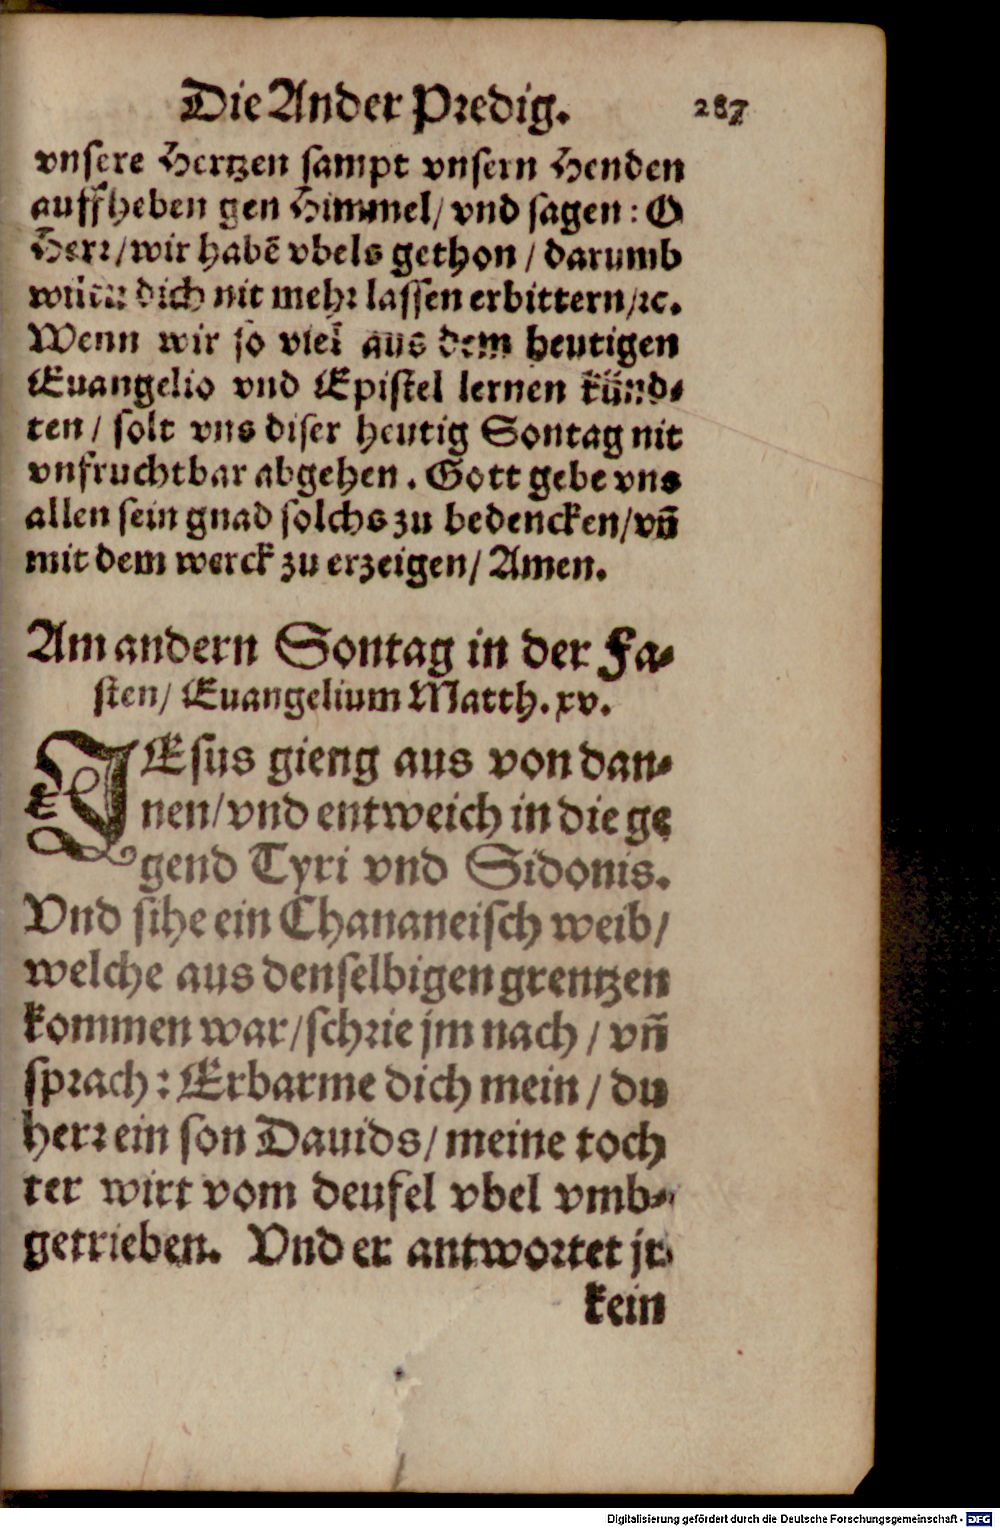 Die Ander Predig. 287
vnsere Hertzen sampt vnsern Henden
auffheben gen Himmel/ vnd sagen: O
Herr/wir habē vbels gethon / darumb
dich nit mehr lassen erbittern/ꝛc.
Wenn wir so viel aus dem heutigen
Euangelio vnd Epistel lernen künd-
ten / solt vns diser heutig Sontag nit
vnfruchtbar abgehen. Gott gebe vns
allen sein gnad solchs zu bedencken/vñ
mit dem werck zu erzeigen/ Amen.
Am andern Sontag in der Fa-
sten/ Euangelium Matth. xv.
JEsus gieng aus von dan-
nen/vnd entweich in die ge
gend Tyri vnd Sidonis.
Vnd sihe ein Chananeisch weib/
welche aus denselbigen grentzen
kommen war/schrie jm nach / vñ
sprach: Erbarme dich mein / du
herr ein son Dauids/ meine toch
ter wirt vom deufel vbel vmb-
getrieben. Vnd er antwortet jr
kein
Digitalisierung gefördert durch die Deutsche Forschungsgemeinschaft - DFG